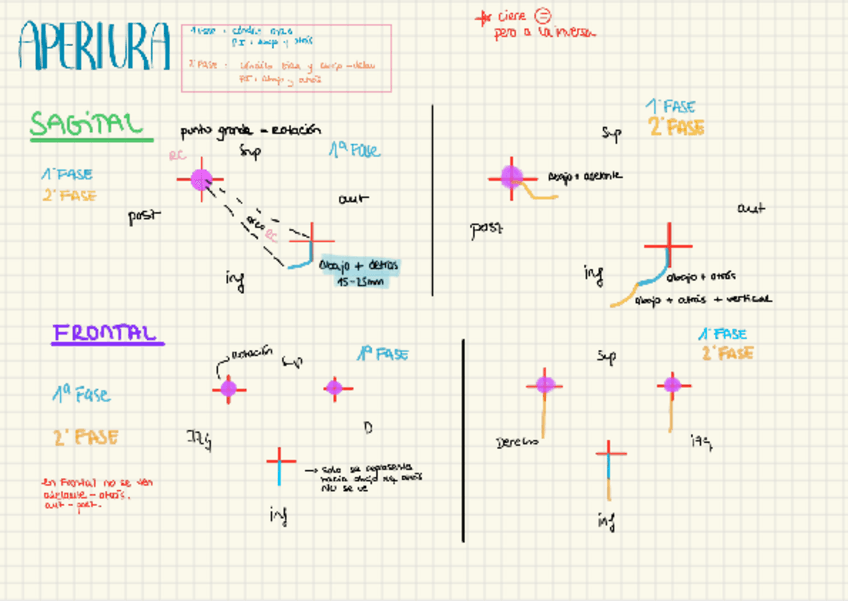 APERTURA
1ª FASE: Cóndilo rota
PI: abajo y atrás
2ª FASE: cóndilo rota y
PI: abajo y atrás
cierre =
pero a la inversa
SAGITAL
punto grande = Rotación
1ª FASE
2ª FASE
RC
Sup
1ª Fase
post
ant
arco RC
inf
Abajo + detrás
15-25mm
1ª FASE
2ª FASE
Sup
Abajo + adelante
post
ant
inf
Abajo + atrás
Abajo + atrás + vertical
FRONTAL
1ª Fase
2ª FASE
rotación
Sup
1ª FASE
Izq
D
→ Solo se representa
hacia abajo xq atrás
NO se ve
inf
en Frontal no se ven
adelante - atrás.
ant - post.
1ª FASE
2ª FASE
Sup
Derecho
izq
inf